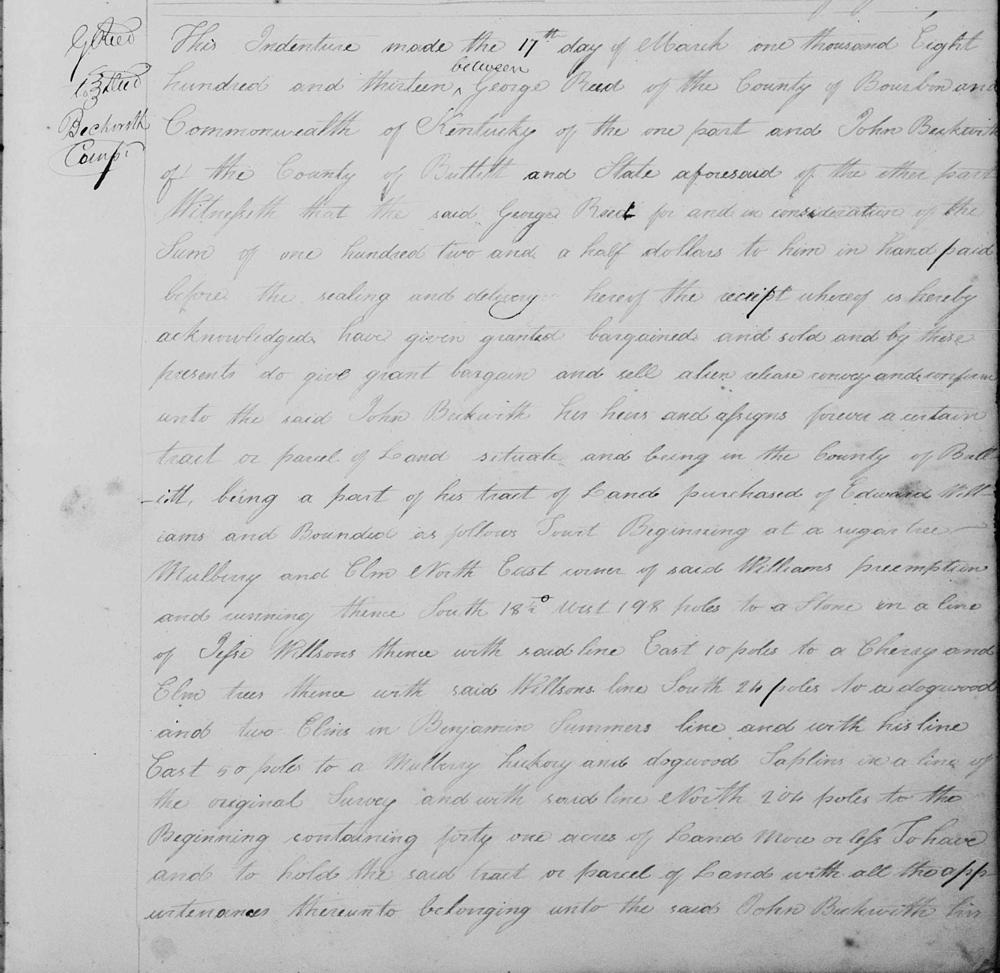 G Reed
to Deed
Beckwith
Comp.
This Indenture made the 17th day of March one thousand Eight
between
hundred and thirteen ^ George Reed of the County of Bourbon and
Commonwealth of Kentucky of the one part and John Beckwith
of the County of Bullitt and State aforesaid of the other part
Witnesseth that the said George Reed for and in consideration of the
Sum of one hundred two and a half dollars to him in hand paid
before the sealing and delivery hereof the receipt whereof is hereby
acknowledged have given granted bargained and sold and by these
presents do give grant bargain and sell alien release convey and confirm
unto the said John Beckwith his heirs and assigns forever a certain
tract or parcel of Land situate and being in the County of Bull
-itt, being a part of his tract of Land purchased of Edward Will-
iams and Bounded as follows Towit Beginning at a sugar tree
Mulberry and Elm North East corner of said Williams preemption
and running thence South 18½° West 198 poles to a Stone in a line
of Jesse Willsons thence with said line East 10 poles to a Cherry and
Elm trees thence with said Willsons line South 24 poles to a dogwood
and two Elms in Benjamin Summers line and with his line
East 50 poles to a Mulberry hickory and dogwood Saplins in a line of
the original Survey and with said line North 204 poles to the
Beginning containing forty one acres of Land More or less To have
and to hold the said tract or parcel of Land with all the app
urtenances thereunto belonging unto the said John Beckwith his